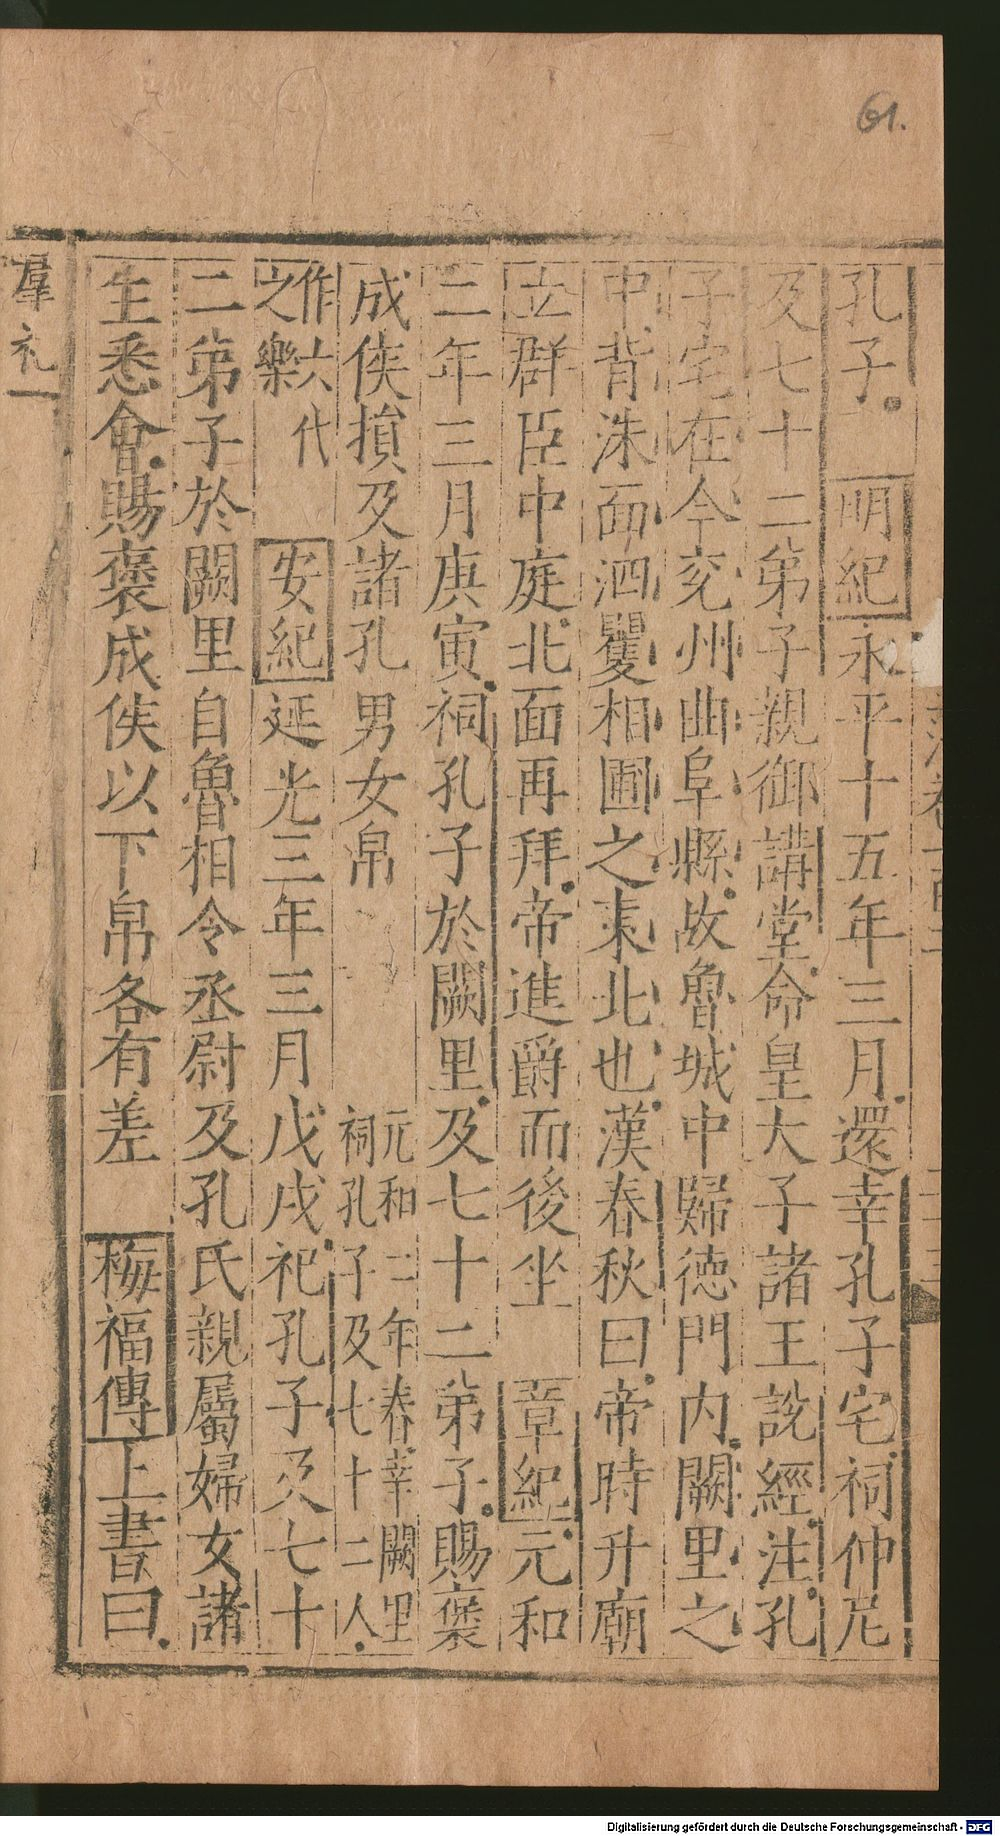 61.
孔子。 明紀永平十五年三月還幸孔子宅祠仲尼
及七十二弟子親御講堂命皇大子諸王說經注孔
子宅在今兖州曲阜縣故魯城中歸德門内闕里之
中背洙面泗矍相圃之東北也漢春秋曰帝時升廟
立群臣中庭北面再拜帝進爵而後坐 章紀元和
二年三月庚寅祠孔子於闕里及七十二弟子賜褒
成侯損及諸孔男女帛 元和二年春幸闕里祠孔子及七十二人
作六代之樂 安紀延光三年三月戊戌祀孔子及七十
二弟子於闕里自魯相令丞尉及孔氏親屬婦女諸
生悉會賜褒成侯以下帛各有差 梅福傳上書曰
羣礼一
Digitalisierung gefördert durch die Deutsche Forschungsgemeinschaft - DFG